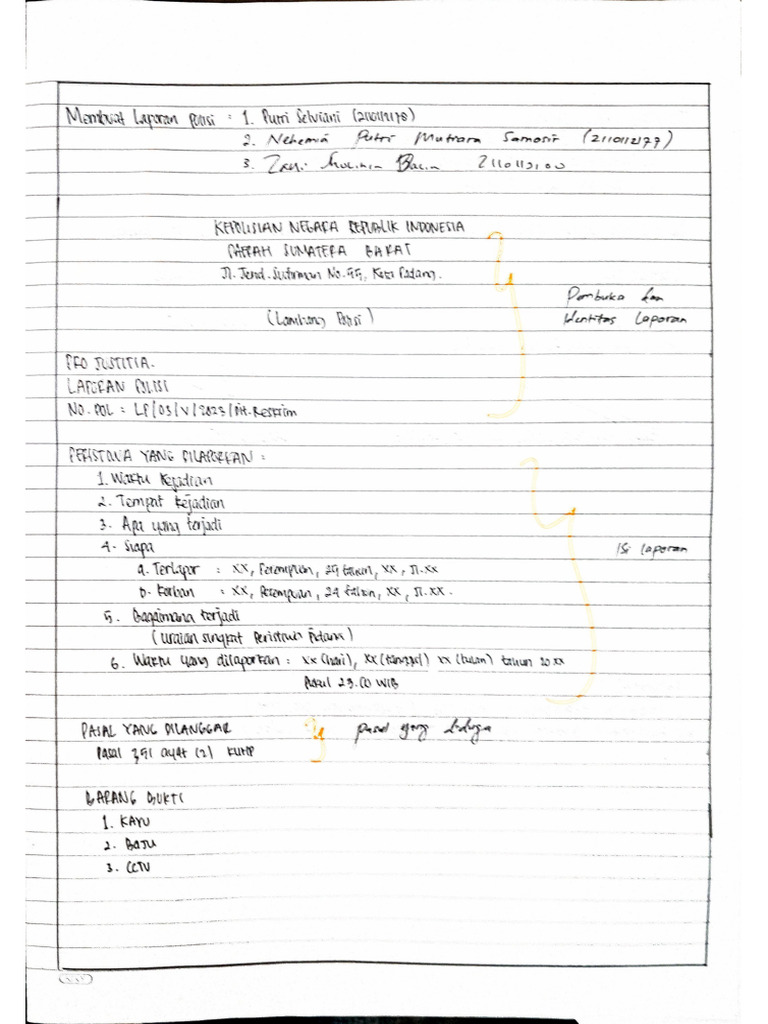 Membuat Laporan Polisi : 1. Putri Selviani (2110112178)
2. Nehemia Putri Mutiara Samosir (2110112177)
3.
KEPOLISIAN NEGARA REPUBLIK INDONESIA
DAERAH SUMATERA BARAT
Jl. Jend. Sudirman No. 55, Kota Padang.
Pembuka dan
(Lambang Polisi) Identitas Laporan
PRO JUSTITIA.
LAPORAN POLISI
NO. POL : LP/03/V/2023/Dit-Reskrim
PERISTIWA YANG DILAPORKAN :
1. Waktu Kejadian
2. Tempat kejadian
3. Apa yang terjadi
4. Siapa
Isi laporan
a. Terlapor : XX, Perempuan, 29 tahun, XX, Jl. XX
b. Korban : XX, Perempuan, 24 tahun, XX, Jl. XX.
5. Bagaimana terjadi
(uraian singkat Peristiwa Pidana)
6. Waktu yang dilaporkan : xx (hari), xx (tanggal) xx (bulan) tahun 20xx
Pukul 23.00 WIB
PASAL YANG DILANGGAR pasal yang diduga
Pasal 351 ayat (2) KUHP
BARANG BUKTI
1. KAYU
2. BAJU
3. CCTV